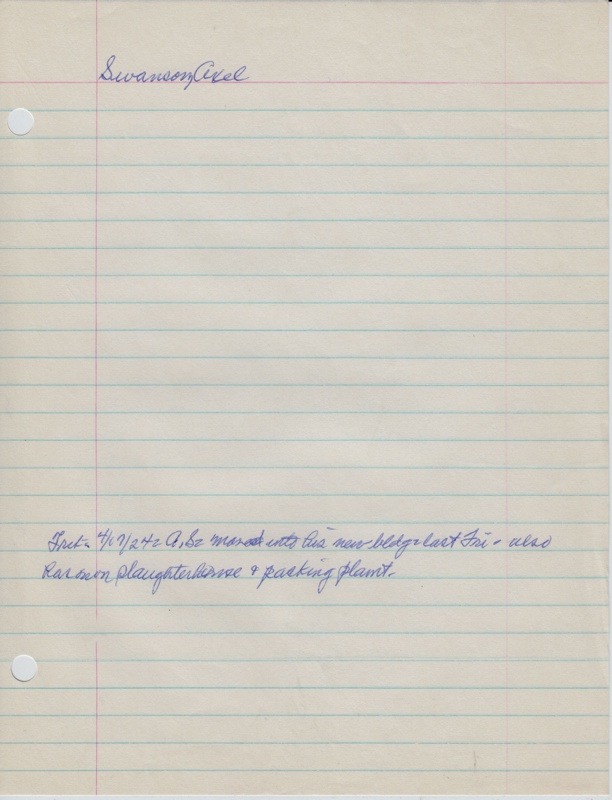 Swanson, Axel
Trib- 4/17/24- A.S- moved into his new bldg-last Fri- also
has own slaughterhouse & packing plant-